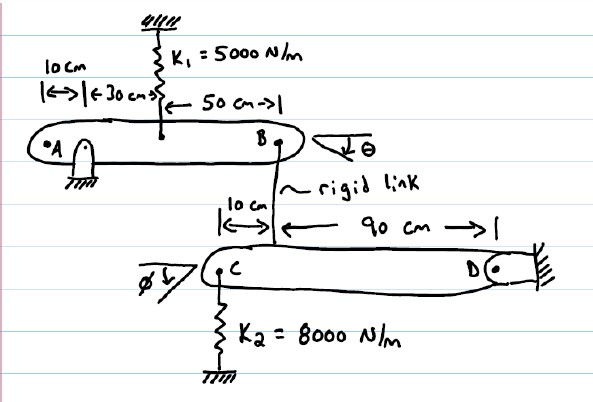 K₁ = 5000 N/m
10 cm
30 cm
50 cm
A
B
θ
rigid link
10 cm
90 cm
φ
C
D
K₂ = 8000 N/m